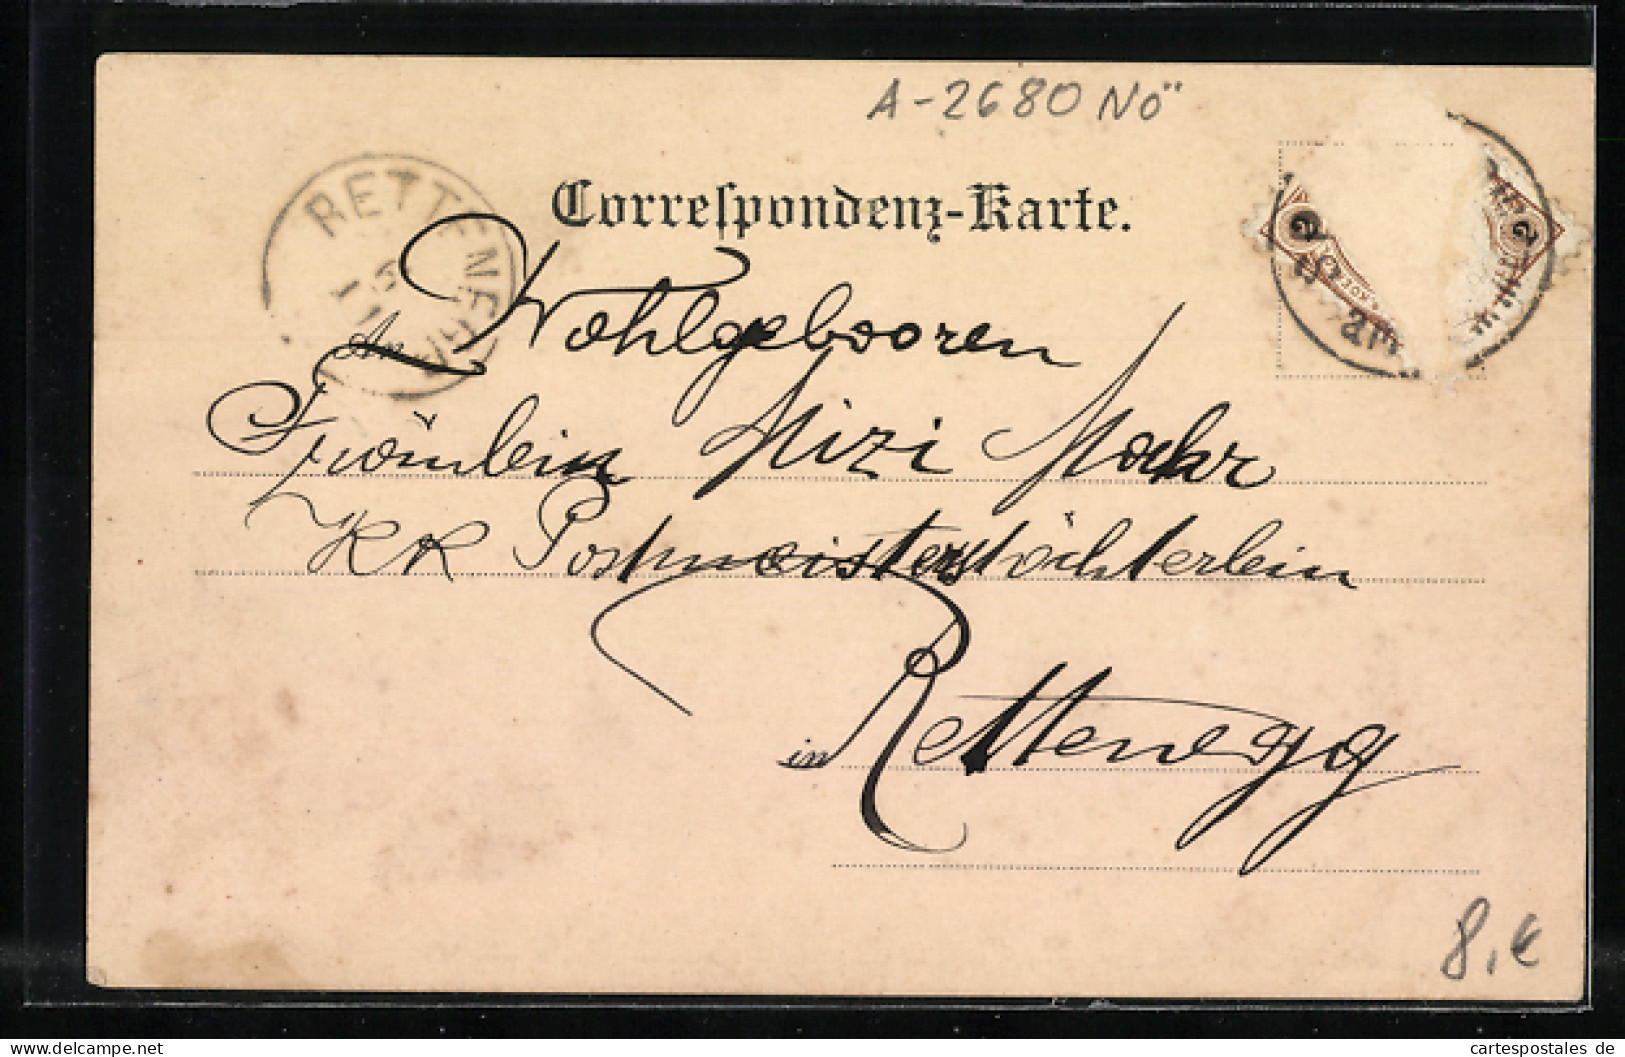 A-2680 NÖ
Correspondenz-Karte.
RETTENEGG
2 2
An Wohlgebooren
Fräulein Mizi Mahr
KK Postmeisterstöchterlein
in Rettenegg
8,€
www.delcampe.net
cartespostales de